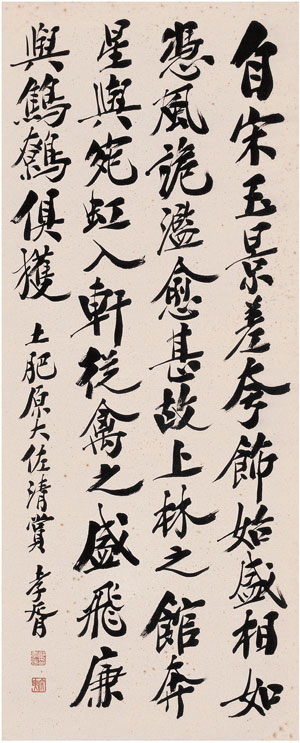 自宋玉景差夸飾始盛相如
憑風詭濫愈甚故上林之館奔
星與宛虹入軒從禽之盛飛廉
與鷦鷯俱獲
土肥原大佐清賞 孝胥